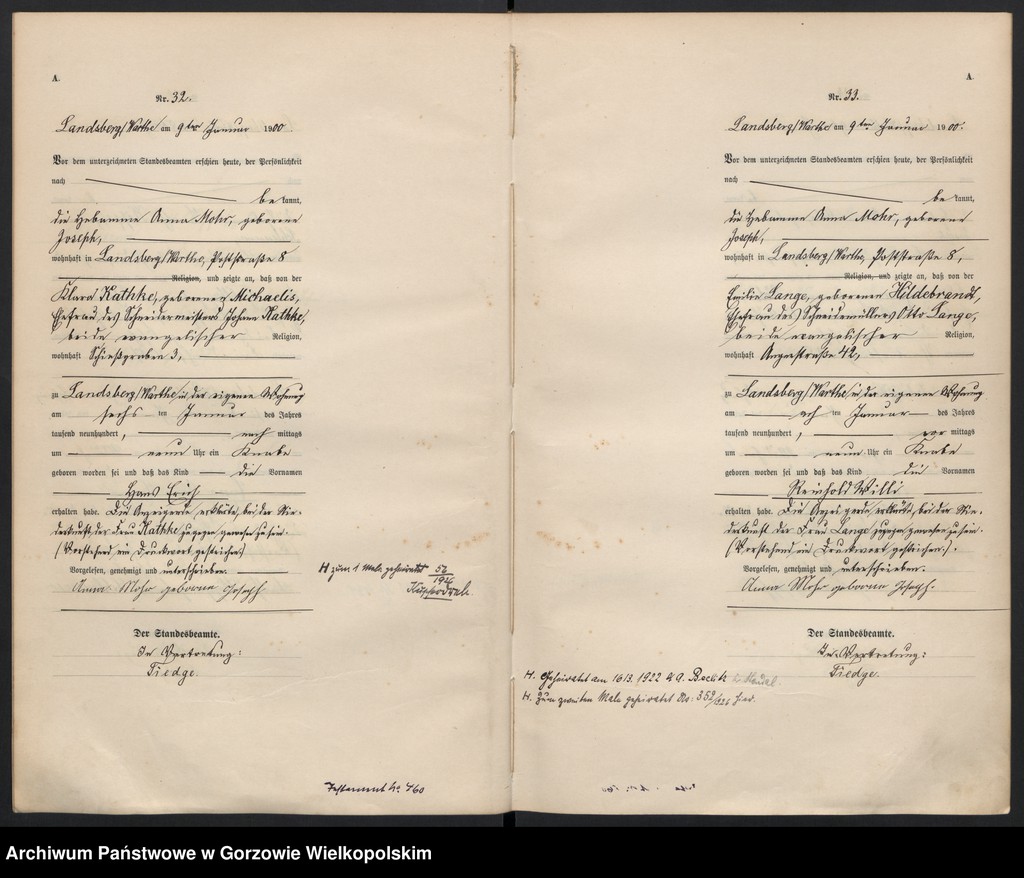 A.
Nr. 32.
Landsberg/Warthe am 9ten Januar 1900.
Vor dem unterzeichneten Standesbeamten erschien heute, der Persönlichkeit
nach
be kannt,
die Hebamme Anna Mohr, geborene
Joseph,
wohnhaft in Landsberg/Warthe, Poststraße 8
Religion, und zeigte an, daß von der
Klara Kathke, geborenen Michaelis,
Ehefrau des Schneidermeisters Johann Kathke,
beide evangelischer Religion,
wohnhaft Schießgraben 3,
zu Landsberg/Warthe in der eigenen Wohnung
am sechsten Januar des Jahres
tausend neunhundert, nach mittags
um neun Uhr ein Knabe
geboren worden sei und daß das Kind die Vornamen
Hans Erich
erhalten habe. Die Anzeigende erklärte, bei der Nie-
derkunft der Frau Kathke zugegen gewesen zu sein.
(Vorstehend ein Druckwort gestrichen)
Vorgelesen, genehmigt und unterschrieben.
Anna Mohr geborene Joseph
Der Standesbeamte.
In Vertretung:
Tiedge.
H zum 1 Male geheiratet 52/
Testament No 460
A.
Nr. 33.
Landsberg/Warthe am 9ten Januar 1900.
Vor dem unterzeichneten Standesbeamten erschien heute, der Persönlichkeit
nach
be kannt,
die Hebamme Anna Mohr, geborene
Joseph,
wohnhaft in Landsberg/Warthe, Poststraße 8,
Religion, und zeigte an, daß von der
Emilie Lange, geborenen Hildebrandt,
Ehefrau des Schneidemüllers Otto Lange,
beide evangelischer Religion,
wohnhaft Angerstraße 42,
zu Landsberg/Warthe in der eigenen Wohnung
am achten Januar des Jahres
tausend neunhundert, vor mittags
um neun Uhr ein Knabe
geboren worden sei und daß das Kind die Vornamen
Reinhold Willi
erhalten habe. Die Anzeigende erklärte, bei der Nie-
derkunft der Frau Lange zugegen gewesen zu sein.
(Vorstehend ein Druckwort gestrichen).
Vorgelesen, genehmigt und unterschrieben.
Anna Mohr geborene Joseph.
Der Standesbeamte.
In Vertretung:
Tiedge.
H. Geheiratet am 16/3. 1922
H. Zum zweiten Male geheiratet No: 352/
Archiwum Państwowe w Gorzowie Wielkopolskim